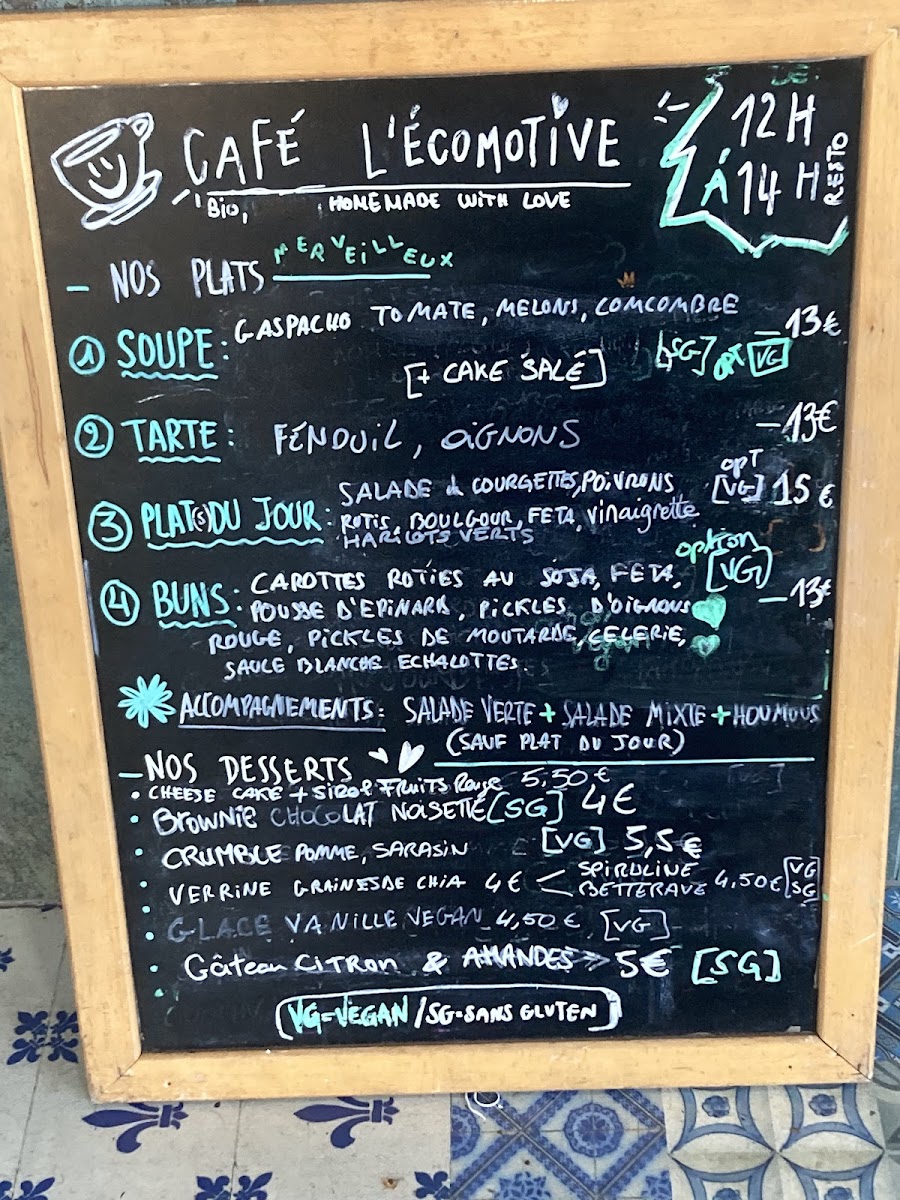 CAFÉ L'ÉCOMOTIVE
Bio, HOMEMADE WITH LOVE
DE:
12H
À 14H
RESTO
- NOS PLATS MERVEILLEUX
① SOUPE: GASPACHO TOMATE, MELONS, COMCOMBRE - 13€
[+ CAKE SALÉ] [SG] OPT [VG]
② TARTE: FENOUIL, OIGNONS - 13€
③ PLAT(S) DU JOUR: SALADE d COURGETTES, POIVRONS opt [VG] 15€
ROTIS, BOULGOUR, FETA, vinaigrette
HARICOTS VERTS
④ BUNS: CAROTTES ROTIES AU SOJA, FETA, option [VG] - 13€
POUSSE D'EPINARD, PICKLES D'OIGNONS
ROUGE, PICKLES DE MOUTARDE, CELERIE,
SAUCE BLANCHE ECHALOTTES.
ACCOMPAGNEMENTS: SALADE VERTE + SALADE MIXTE + HOUMOUS
(SAUF PLAT DU JOUR)
- NOS DESSERTS
• CHEESE CAKE + SIROP FRUITS ROUGE 5,50€
• Brownie CHOCOLAT NOISETTE [SG] 4€
• CRUMBLE POMME, SARASIN [VG] 5,5€
• VERRINE GRAINES DE CHIA 4€ < SPIRULINE
BETTERAVE 4,50€ [VG SG]
• GLACE VANILLE VEGAN 4,50€ [VG]
• Gâteau CITRON & AMANDES 5€ [SG]
VG=VEGAN / SG=SANS GLUTEN